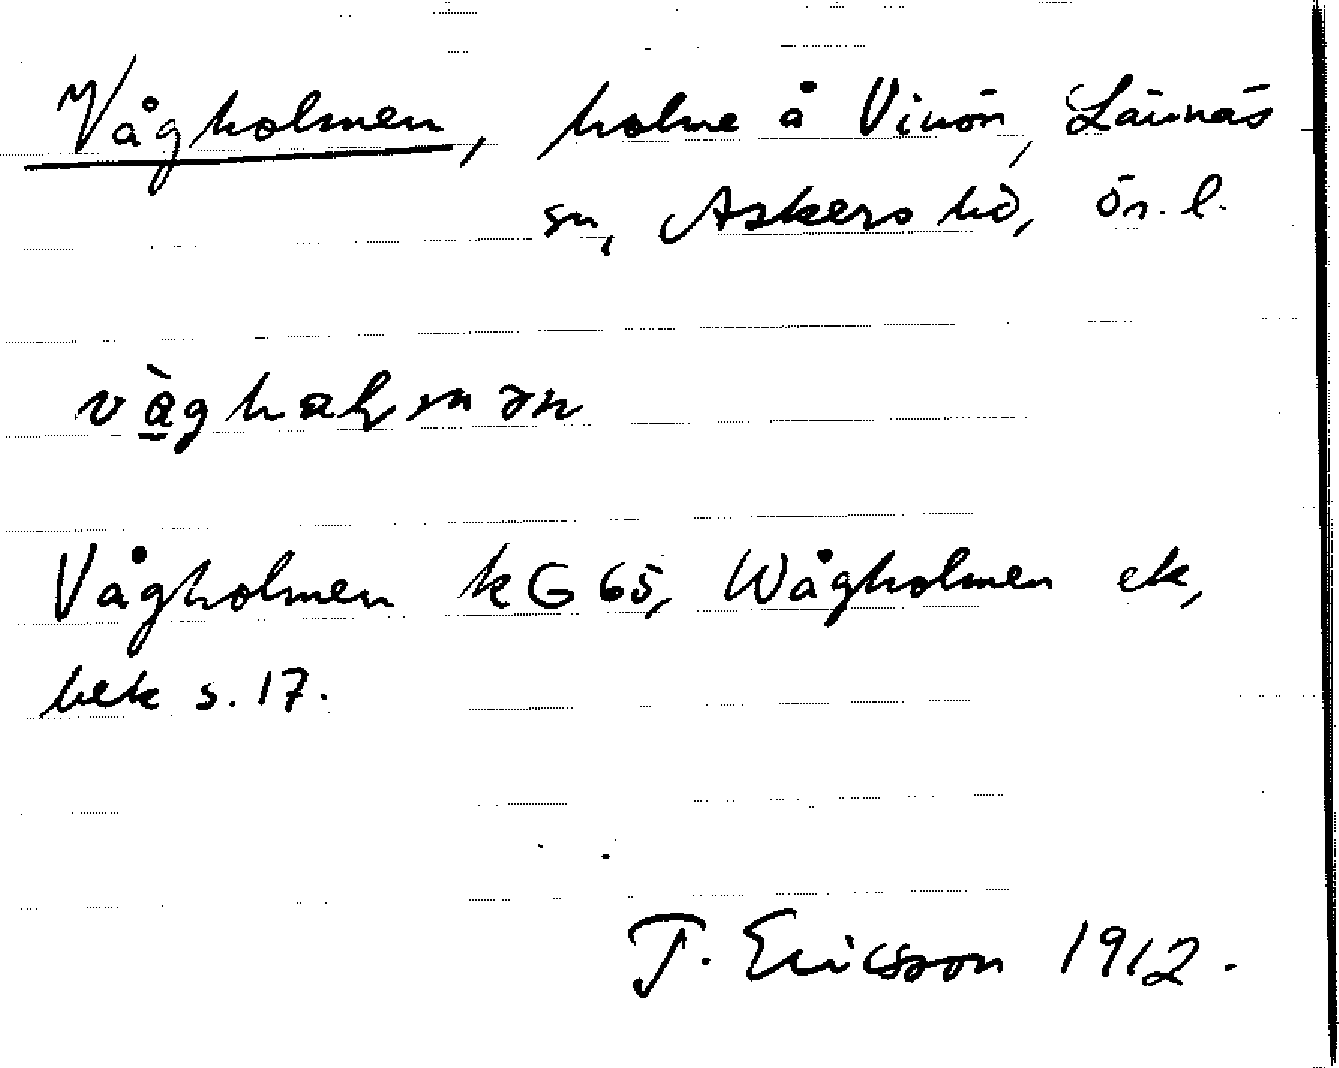 Vågholmen, holme å Vinön, Lännäs
sn, Askers hd, Ör. l.
vå̀gholmən
Vågholmen kG 65, Wågholmen ek,
bek s. 17.
T. Ericsson 1912.